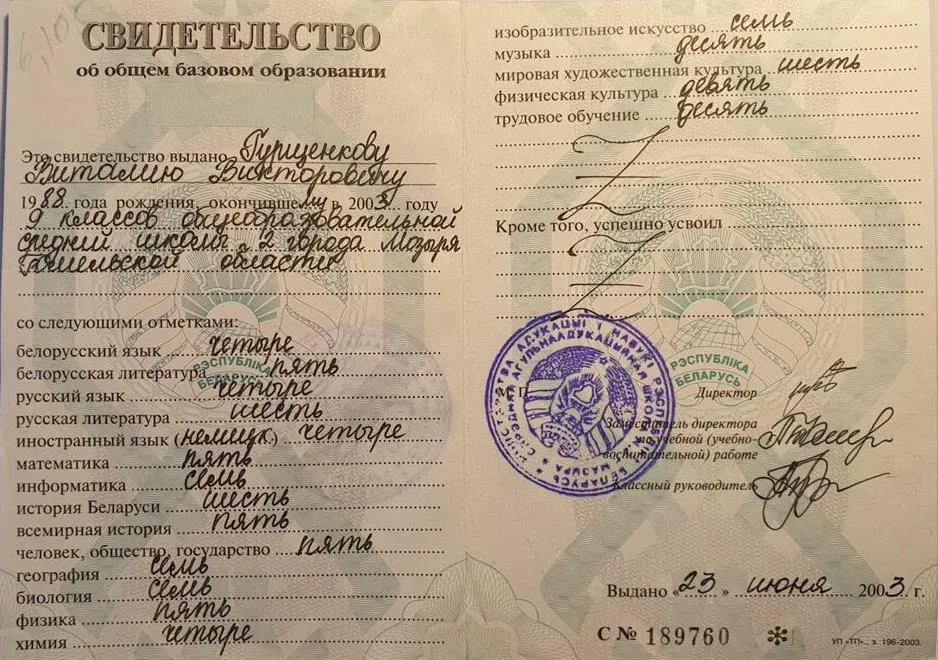 СВИДЕТЕЛЬСТВО
об общем базовом образовании
Это свидетельство выдано Гурщенкову
Виталию Викторовичу
1988 года рождения, окончившему в 2003 году
9 классов общеобразовательной
средний школы 2 города Мозыря
Гомельской области
со следующими отметками:
белорусский язык четыре
белорусская литература пять
русский язык четыре
русская литература шесть
иностранный язык (немецк.) четыре
математика пять
информатика семь
история Беларуси шесть
всемирная история пять
человек, общество, государство пять
география семь
биология семь
физика пять
химия четыре
РЭСПУБЛІКА
БЕЛАРУСЬ
изобразительное искусство семь
музыка десять
мировая художественная культура шесть
физическая культура девять
трудовое обучение десять
Кроме того, успешно усвоил
РЭСПУБЛІКА
БЕЛАРУСЬ
Директор
Заместитель директора
по учебной (учебно-
воспитательной) работе
Классный руководитель
Выдано «23» июня 2003 г.
С № 189760
УП «ТП»., з. 196-2003.